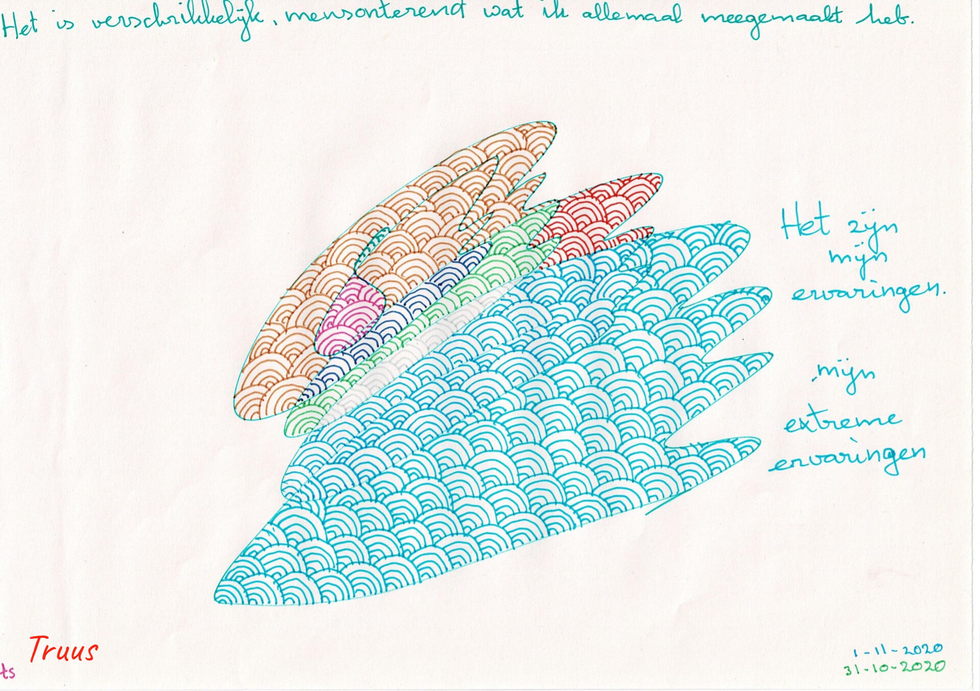 Het is verschrikkelijk, mensonterend wat ik allemaal meegemaakt heb.
Het zijn
mijn
ervaringen.
mijn
extreme
ervaringen
Truus
ts
1-11-2020
31-10-2020